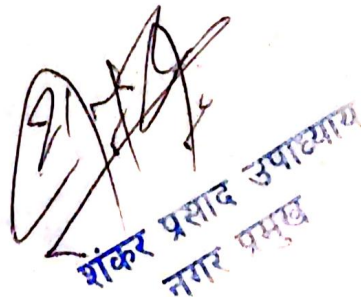 शंकर प्रसाद उपाध्याय
नगर प्रमुख